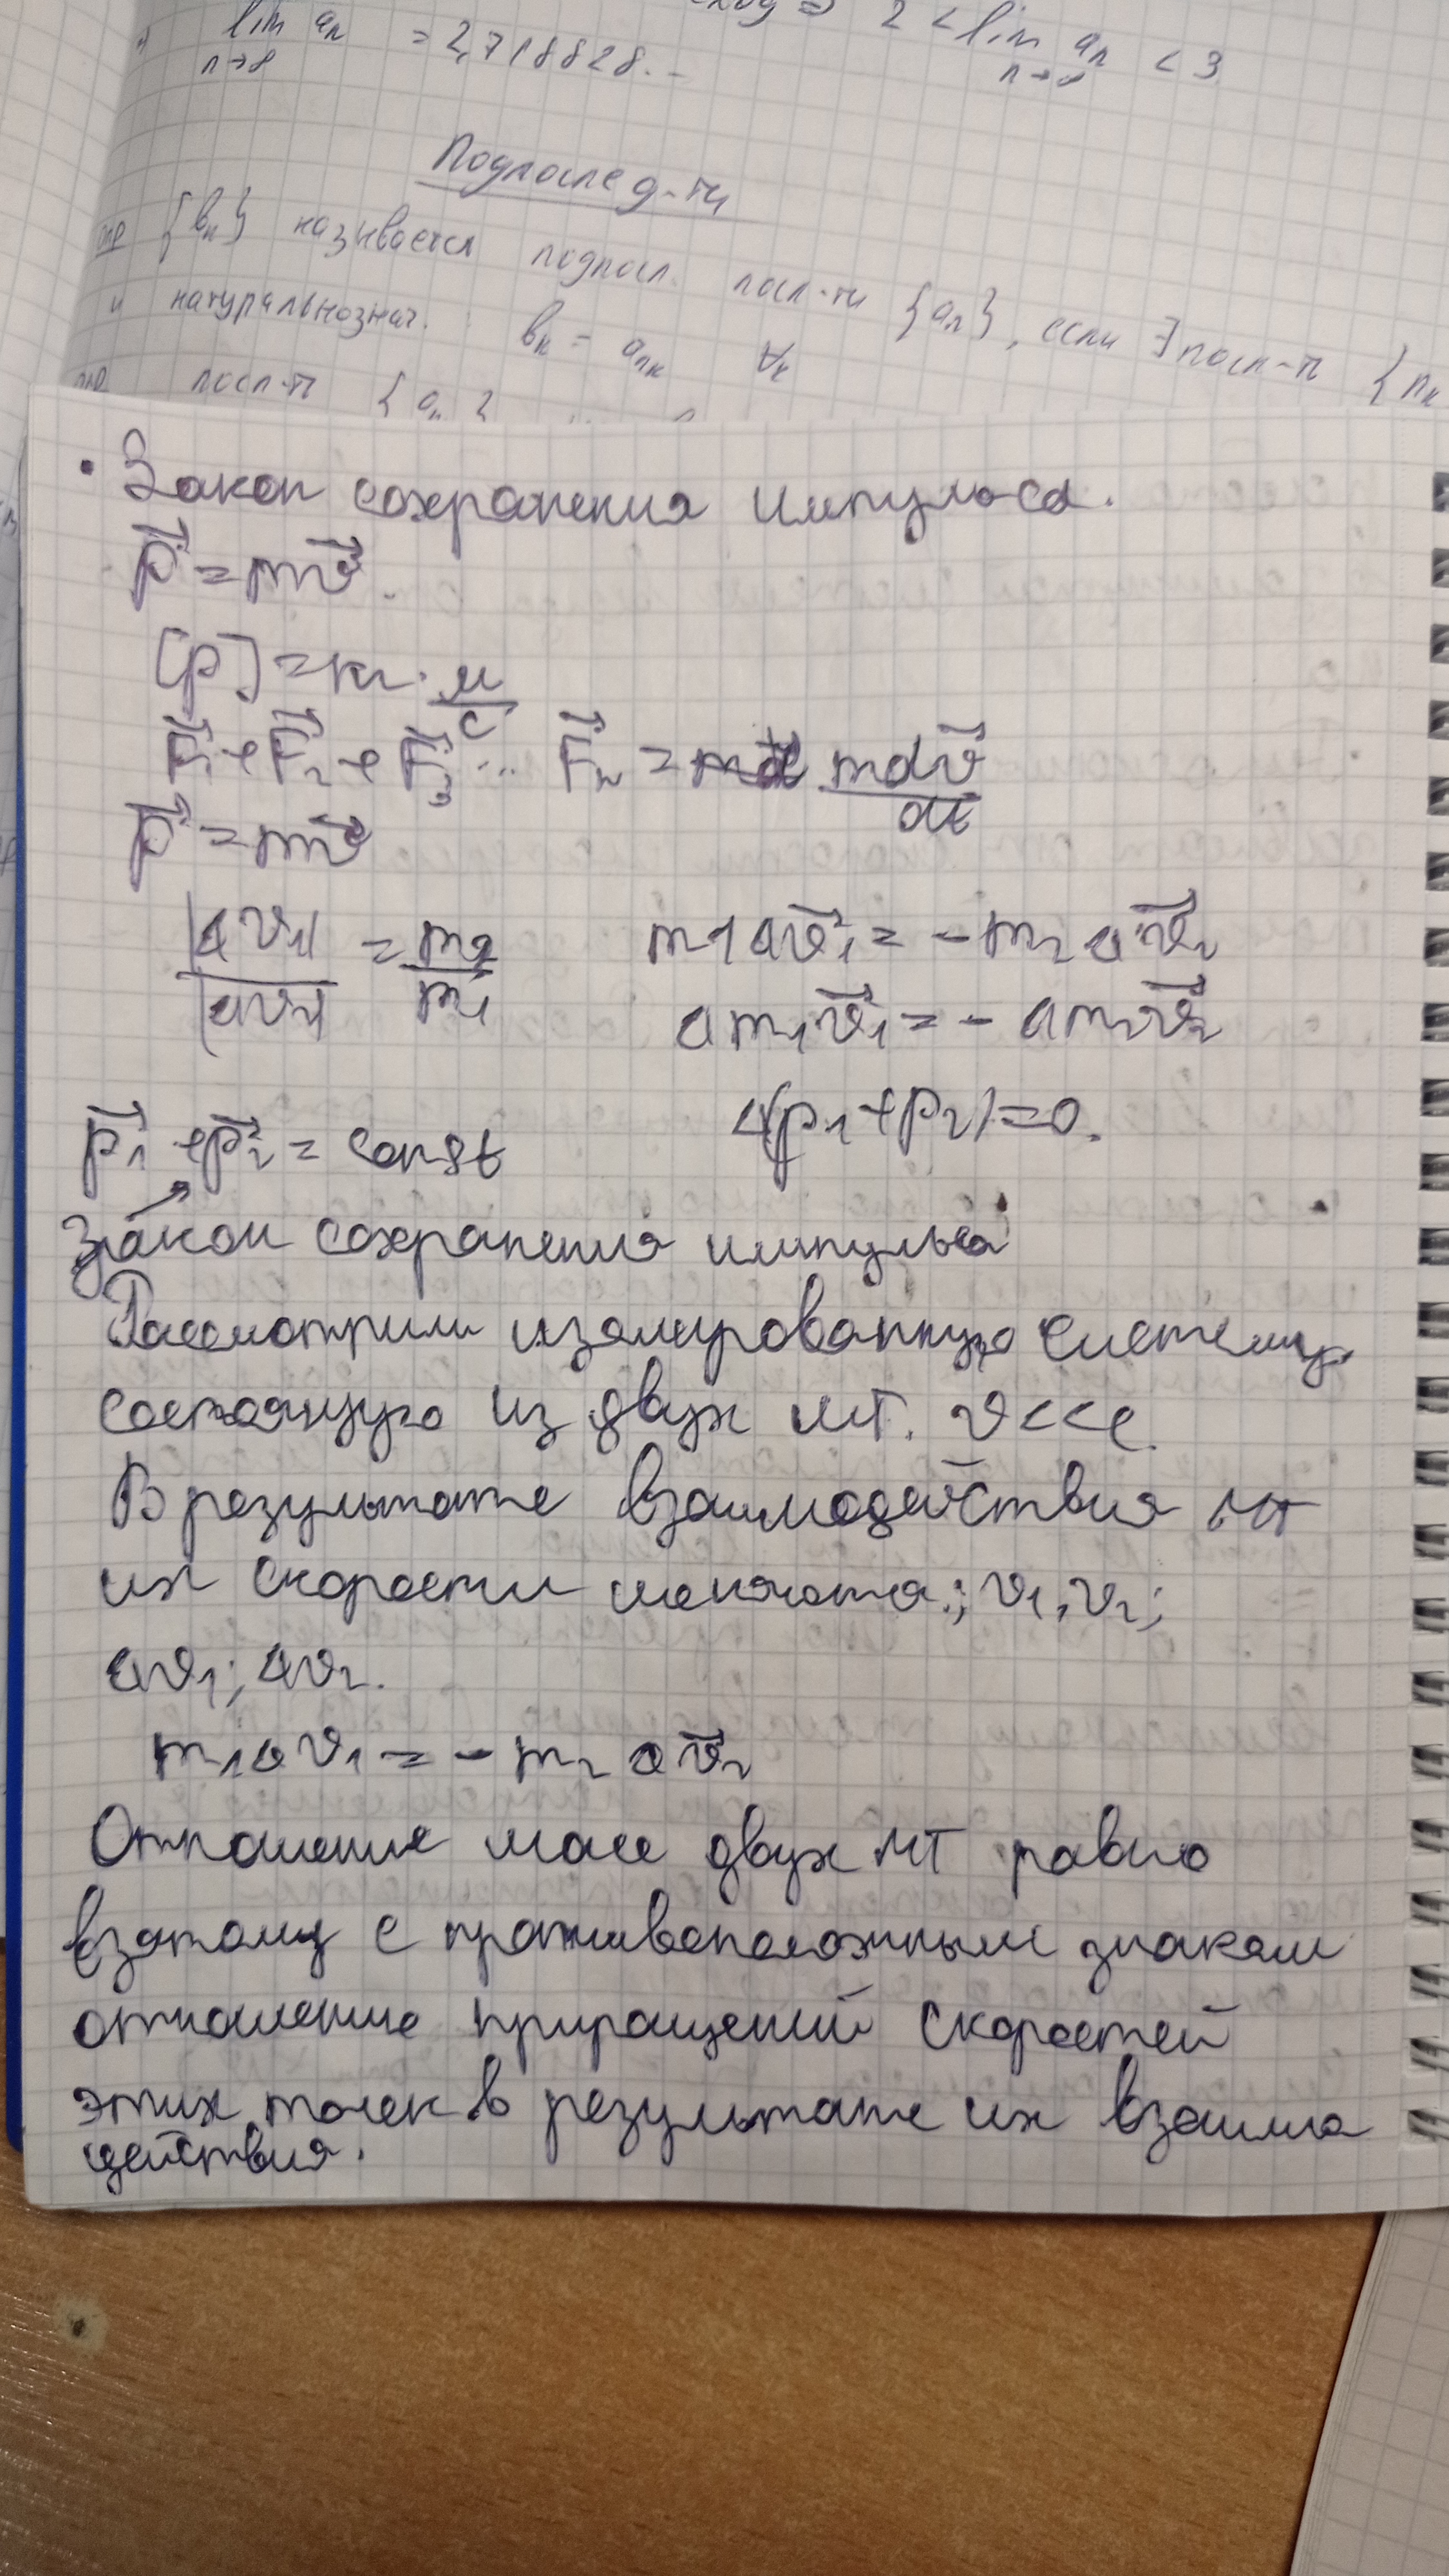 lim aₙ = 2,718828... => 2 < lim aₙ < 3
n→∞ n→∞
Подпослед-ти
опр {bₖ} называется подпосл. посл-ти {aₙ}, если ∃ посл-ть {nₖ
и натуральнознач. : bₖ = aₙₖ ∀ₖ
посл-ть {aₙ}
• Закон сохранения импульса.
p⃗ = mv⃗.
[p] = кг · м/с
F⃗₁ + F⃗₂ + F⃗₃ ... F⃗ₙ = mdv⃗/dt
p⃗ = mv⃗
|Δv₁|/|Δv₂| = m₂/m₁ m₁Δv⃗₁ = -m₂Δv⃗₂
Δm₁v⃗₁ = -Δm₂v⃗₂
Δ(p₁+p₂)=0.
p⃗₁ + p⃗₂ = const
Закон сохранения импульса
Рассмотрим изолированную систему
состоящую из двух МТ. v<<c.
В результате взаимодействия МТ
их скорости меняются:; v₁, v₂;
Δv₁; Δv₂.
m₁Δv₁ = -m₂Δv⃗₂
Отношение масс двух МТ равно
взятому с противоположным знаком
отношение приращений скоростей
этих точек в результате их взаимо
действия.